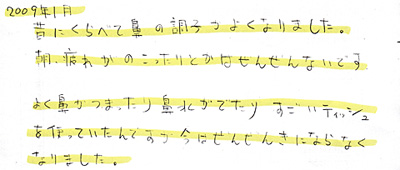 2009年1月
昔にくらべて鼻の調子がよくなりました。
朝、疲れがのこったりとかはぜんぜんないです
よく鼻がつまったり鼻水がでたり すごいティッシュ
を使っていたんですが今はぜんぜんきにならなく
なりました。